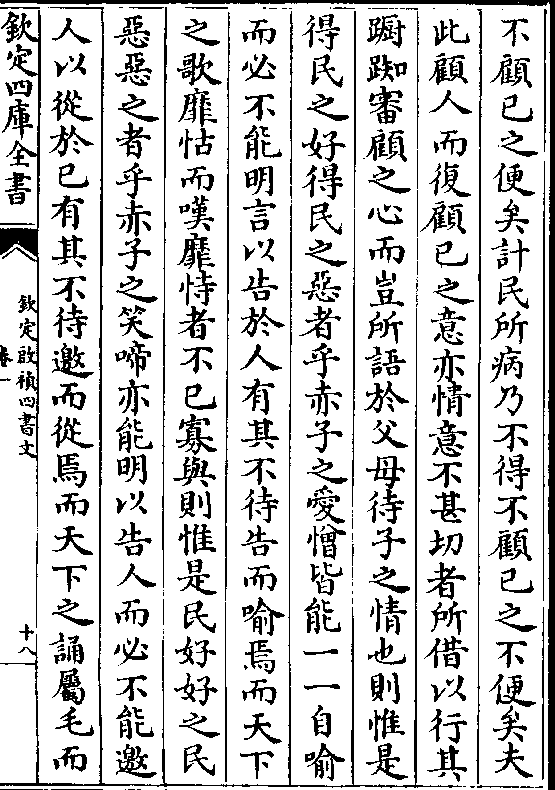 不顧已之便矣計民所病乃不得不顧已之不便矣夫
此顧人而復顧已之意亦情意不甚切者所借以行其
蹰踟審顧之心而豈所語於父母待子之情也則惟是
得民之好得民之惡者乎赤子之愛憎皆能一一自喻
而必不能明言以告於人有其不待告而喻焉而天下
之歌靡怙而嘆靡恃者不已寡與則惟是民好好之民
惡惡之者乎赤子之笑啼亦能明以告人而必不能邀
人以從於已有其不待邀而從焉而天下之誦屬毛而
欽定四庫全書
欽定啟禎四書文
卷一
十八